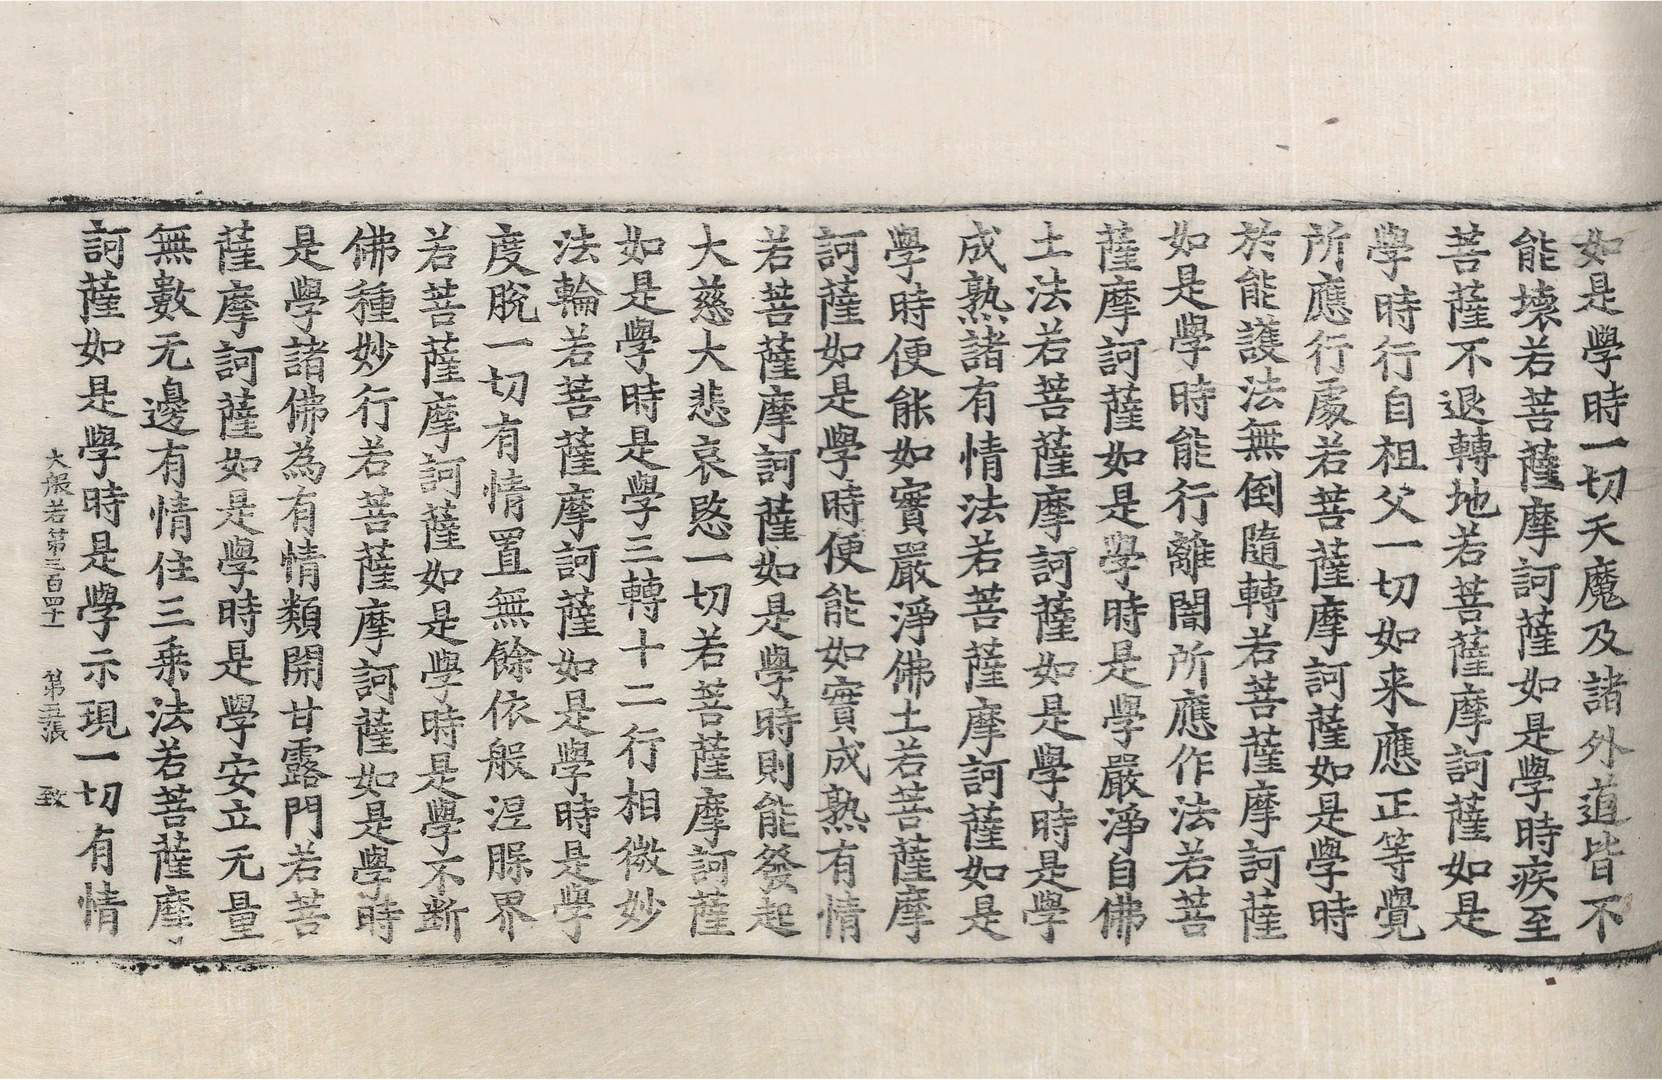 如是學時一切天魔及諸外道皆不
能壞若菩薩摩訶薩如是學時疾至
菩薩不退轉地若菩薩摩訶薩如是
學時行自祖父一切如来應正等覺
所應行處若菩薩摩訶薩如是學時
於能護法無倒隨轉若菩薩摩訶薩
如是學時能行離闇所應作法若菩
薩摩訶薩如是學時是學嚴淨自佛
土法若菩薩摩訶薩如是學時是學
成熟諸有情法若菩薩摩訶薩如是
學時便能如實嚴淨佛土若菩薩摩
訶薩如是學時便能如實成熟有情
若菩薩摩訶薩如是學時則能發起
大慈大悲哀愍一切若菩薩摩訶薩
如是學時是學三轉十二行相微妙
法輪若菩薩摩訶薩如是學時是學
度脫一切有情置無餘依般涅槃界
若菩薩摩訶薩如是學時是學不断
佛種妙行若菩薩摩訶薩如是學時
是學諸佛為有情類開甘露門若菩
薩摩訶薩如是學時是學安立无量
無數无邊有情住三乗法若菩薩摩
訶薩如是學時是學示現一切有情
大般若第三百四十一 第五張 致